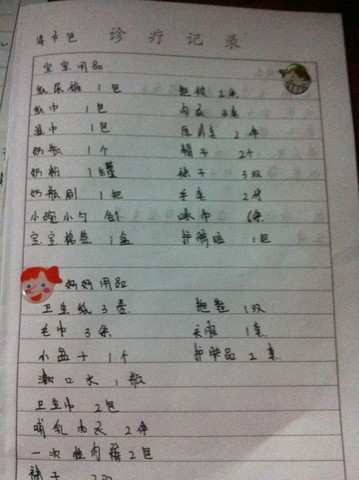 待产包 诊疗记录
宝宝用品
纸尿裤 1包 抱被 2条
纸巾 1包 内衣 3套
湿巾 1包 2件
奶瓶 1个 帽子 2个
奶粉 1罐 袜子 3双
奶瓶刷 1把 手套 2付
小碗小勺 1套 口水巾 6条
宝宝棉签 1盒 护脐贴 1包
妈妈用品
卫生纸 3卷 拖鞋 1双
毛巾 3条 衣服 1套
小盆子 1个 护肤品 2套
漱口水 1瓶
卫生巾 2包
哺乳内衣 2件
一次性内裤 2包
袜子 2双